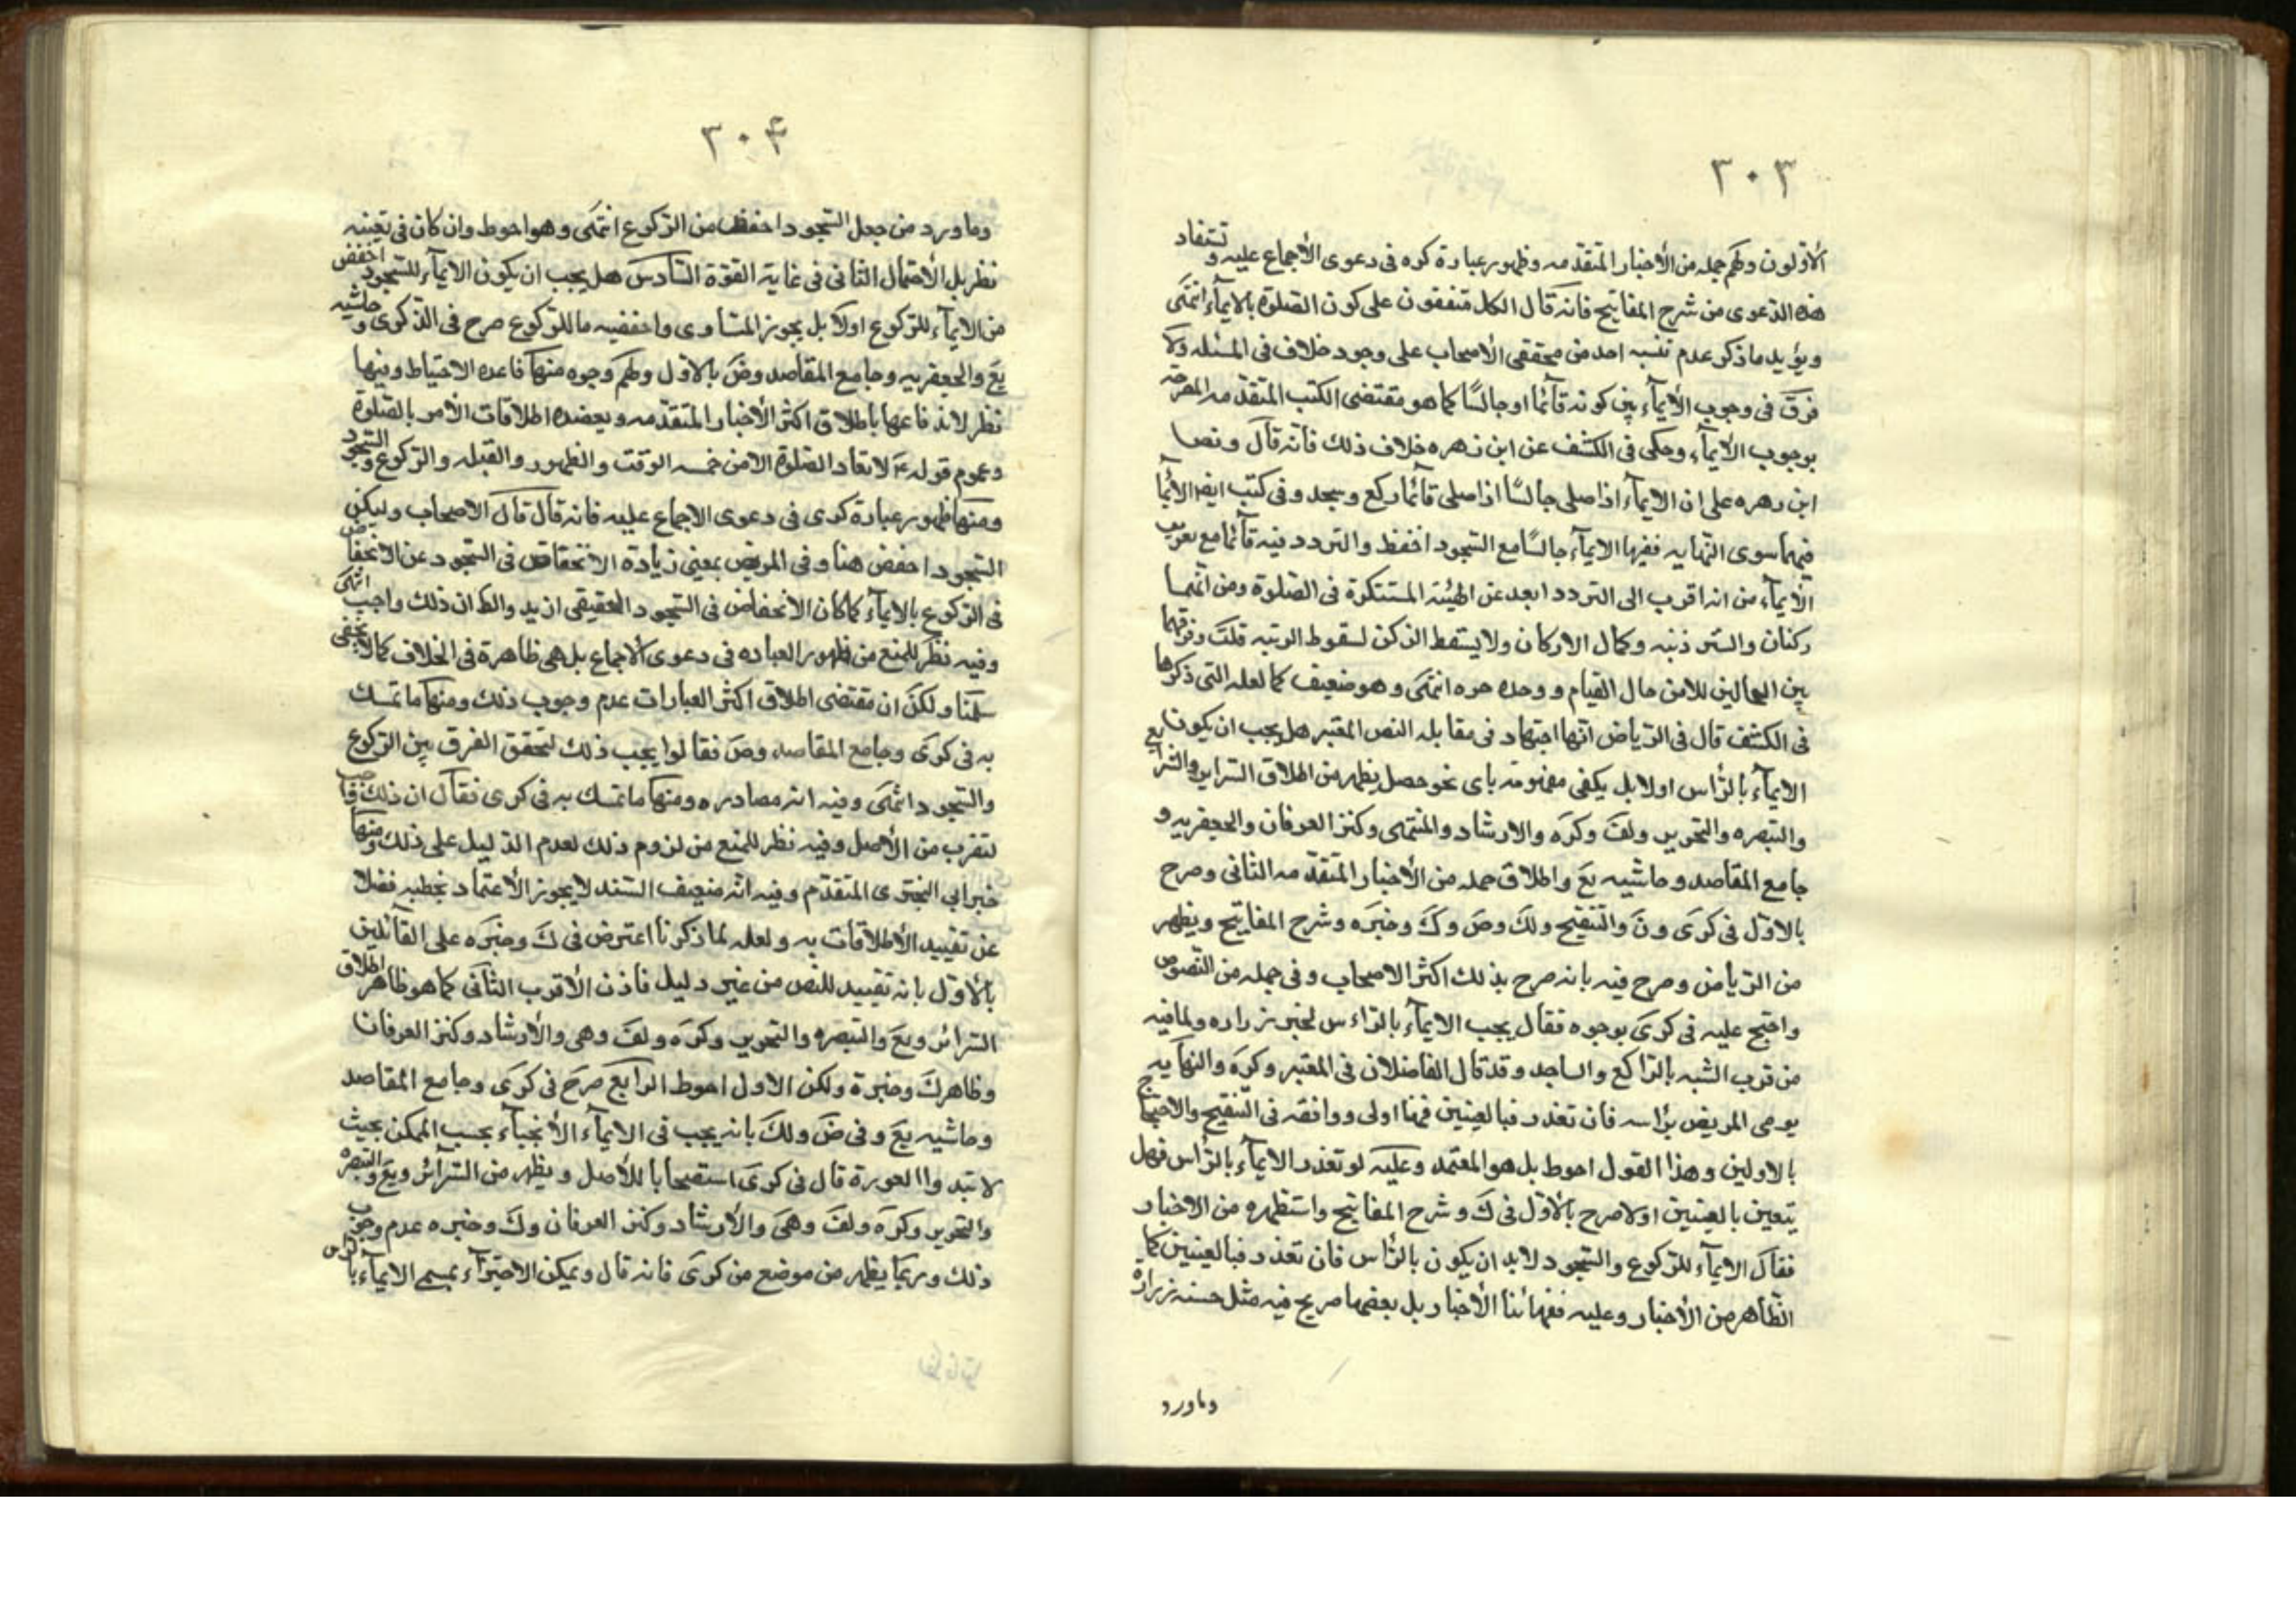 ٣٠٣
الأولون ولهم جمله من الأخبار المتقدمه وظهور عبارة كره في دعوى الأجماع عليه و تستفاد
هذه الدعوى من شرح المفاتيح فانه قال الكل متفقون على كون الصلوة بالايمآء انتهى
ويؤيد ما ذكر عدم تنبيه احد من محققي الأصحاب على وجود خلاف في المسئله ولا
فرق في وجوب الأيمآء بين كونه قآئما او جالسًا كما هو مقتضى الكتب المتقدمه المصرحه
بوجوب الأيمآء وحكى في الكشف عن ابن زهره خلاف ذلك فانه قال ونص
ابن زهره على ان الايمآء اذا صلى جالسًا اذا صلى قائما ركع وسجد وفي كتب
سوى النهايه ففيها الايمآء جالسًا مع السجود اخفظ والتردد فيه قآئما مع
الأيمآء من انه اقرب الى التردد ابعد عن الهيئة المستنكرة في الصلوة ومن انهما
ركنان والستر وكمال الاركان ولا يسقط الركن لسقوط قلت وفرقهما
بين الحالين للامن حال القيام ووحده انتهى وهو ضعيف كما لعله التي ذكرها
في الكشف قال في الرياض انها اجتهاد في مقابله النص المعتبر هل يجب ان يكون
الايمآء بالرأس اولا بل يكفي مفهومه باى نحو حصل يظهر من اطلاق السراير والشرايع
والتبصره والتحرير ولف وكره والارشاد والمنتهى وكنز العرفان والجعفريه و
جامع المقاصد وحاشيه يع واطلاق جمله من الأخبار المتقدمه الثاني وصرح
بالاول في كرى ون والتنقيح ولك وض وك وخيره وشرح المفاتيح ويظهر
من الرياض وصرح فيه بانه صرح بذلك اكثر الاصحاب وفي جمله من النصوص
واحتج عليه في كرى بوجوه فقال يجب الايمآء بالراس لخبر زراره ولما فيه
من قرب الشبه بالراكع والساجد وقد قال الفاضلان في المعتبر وكره والنهايه
يومى المريض براسه فان تعذر فبالعينين فهنا اولى ووافقه في التنقيح والاحتجاج
بالاولين وهذا القول احوط بل هو المعتمد وعليه لو تعذر الايمآء بالرأس فهل
يتعين بالعينين اولا صرح بالاول في ك وشرح المفاتيح واستظهره من الاخبار
فقال الايمآء للركوع والسجود لابد ان يكون بالرأس فان تعذر فبالعينين كما
الظاهر من الأخبار وعليه فقهائنا الأخيار بل بعضها صريح فيه مثل حسنه زرارة
وما ورد
٣٠۴
وما ورد من جعل السجود اخفظ من الركوع انتهى وهو احوط وان كان في تعينه
نظر بل الأحتمال الثاني في غاية القوة السادس هل يجب ان يكون الايمآء للسجود اخفض
من الايمآء للركوع اولا بل يجوز المتساوى واخفضيه ما للركوع صرح في الذكرى و حاشيه
يع والجعفريه وجامع المقاصد وض بالاول ولهم وجوه منها قاعده الاحتياط وفيها
نظر لاندفاعها باطلاق اكثر الأخبار المتقدمه ويعضده اطلاقات الأمر بالصلوة
وعموم قوله ع لا تعاد الصلوة الا من خمسه الوقت والطهور والقبله والركوع و السجود
ومنها ظهور عبارة كرى في دعوى الاجماع عليه فانه قال قال الاصحاب وليكن
السجود اخفض هنا وفي المريض بمعنى زيادة الأنخفاض في السجود عن الانخفاض
في الركوع بالايمآء كما كان الانخفاض في السجود الحقيقى ازيد والظ ان ذلك واجب انتهى
وفيه نظر للمنع من ظهور العباده في دعوى الاجماع بل هي ظاهرة في الخلاف كما لا يخفى
سلمنا ولكن ان مقتضى اطلاق اكثر العبارات عدم وجوب ذلك ومنها ما تمسك
به في كرى وجامع المقاصد وض فقالوا يجب ذلك لتحقق الفرق بين الركوع
والسجود انتهى وفيه انه مصادره ومنها ما تمسك به في كرى فقال ان ذلك
لتقرب من الأصل وفيه نظر للمنع من لزوم ذلك لعدم الدليل على ذلك ومنها
خبر ابي البختري المتقدم وفيه انه ضعيف السند لا يجوز الأعتماد فضلا
عن تقييد الأطلاقات به ولعله لما ذكرنا اعترض في ك وخيره على القآئلين
بالأول بانه تقييد للنص من غير دليل فاذن الأقرب الثآني كما هو ظاهر اطلاق
السرائر ويع والتبصره والتحرير وكره ولف وهى والأرشاد وكنز العرفان
وظاهر ك وخيرة ولكن الاول احوط الرابع صرح في كرى وجامع المقاصد
وحاشيه يع وفي ض ولك بانه يجب في الايمآء الأنحنآء بحسب الممكن بحيث
لا تبدوا العورة قال في كرى استصحابا للأصل ويظهر من السرآئر ويع والتبصره
والتحرير وكره ولف وهى والأرشاد وكنز العرفان وك وخيره عدم وجوب
ذلك وربما يظهر من موضع من كرى فانه قال ويمكن الاجتزآء بمسمى الايمآء بالرأس